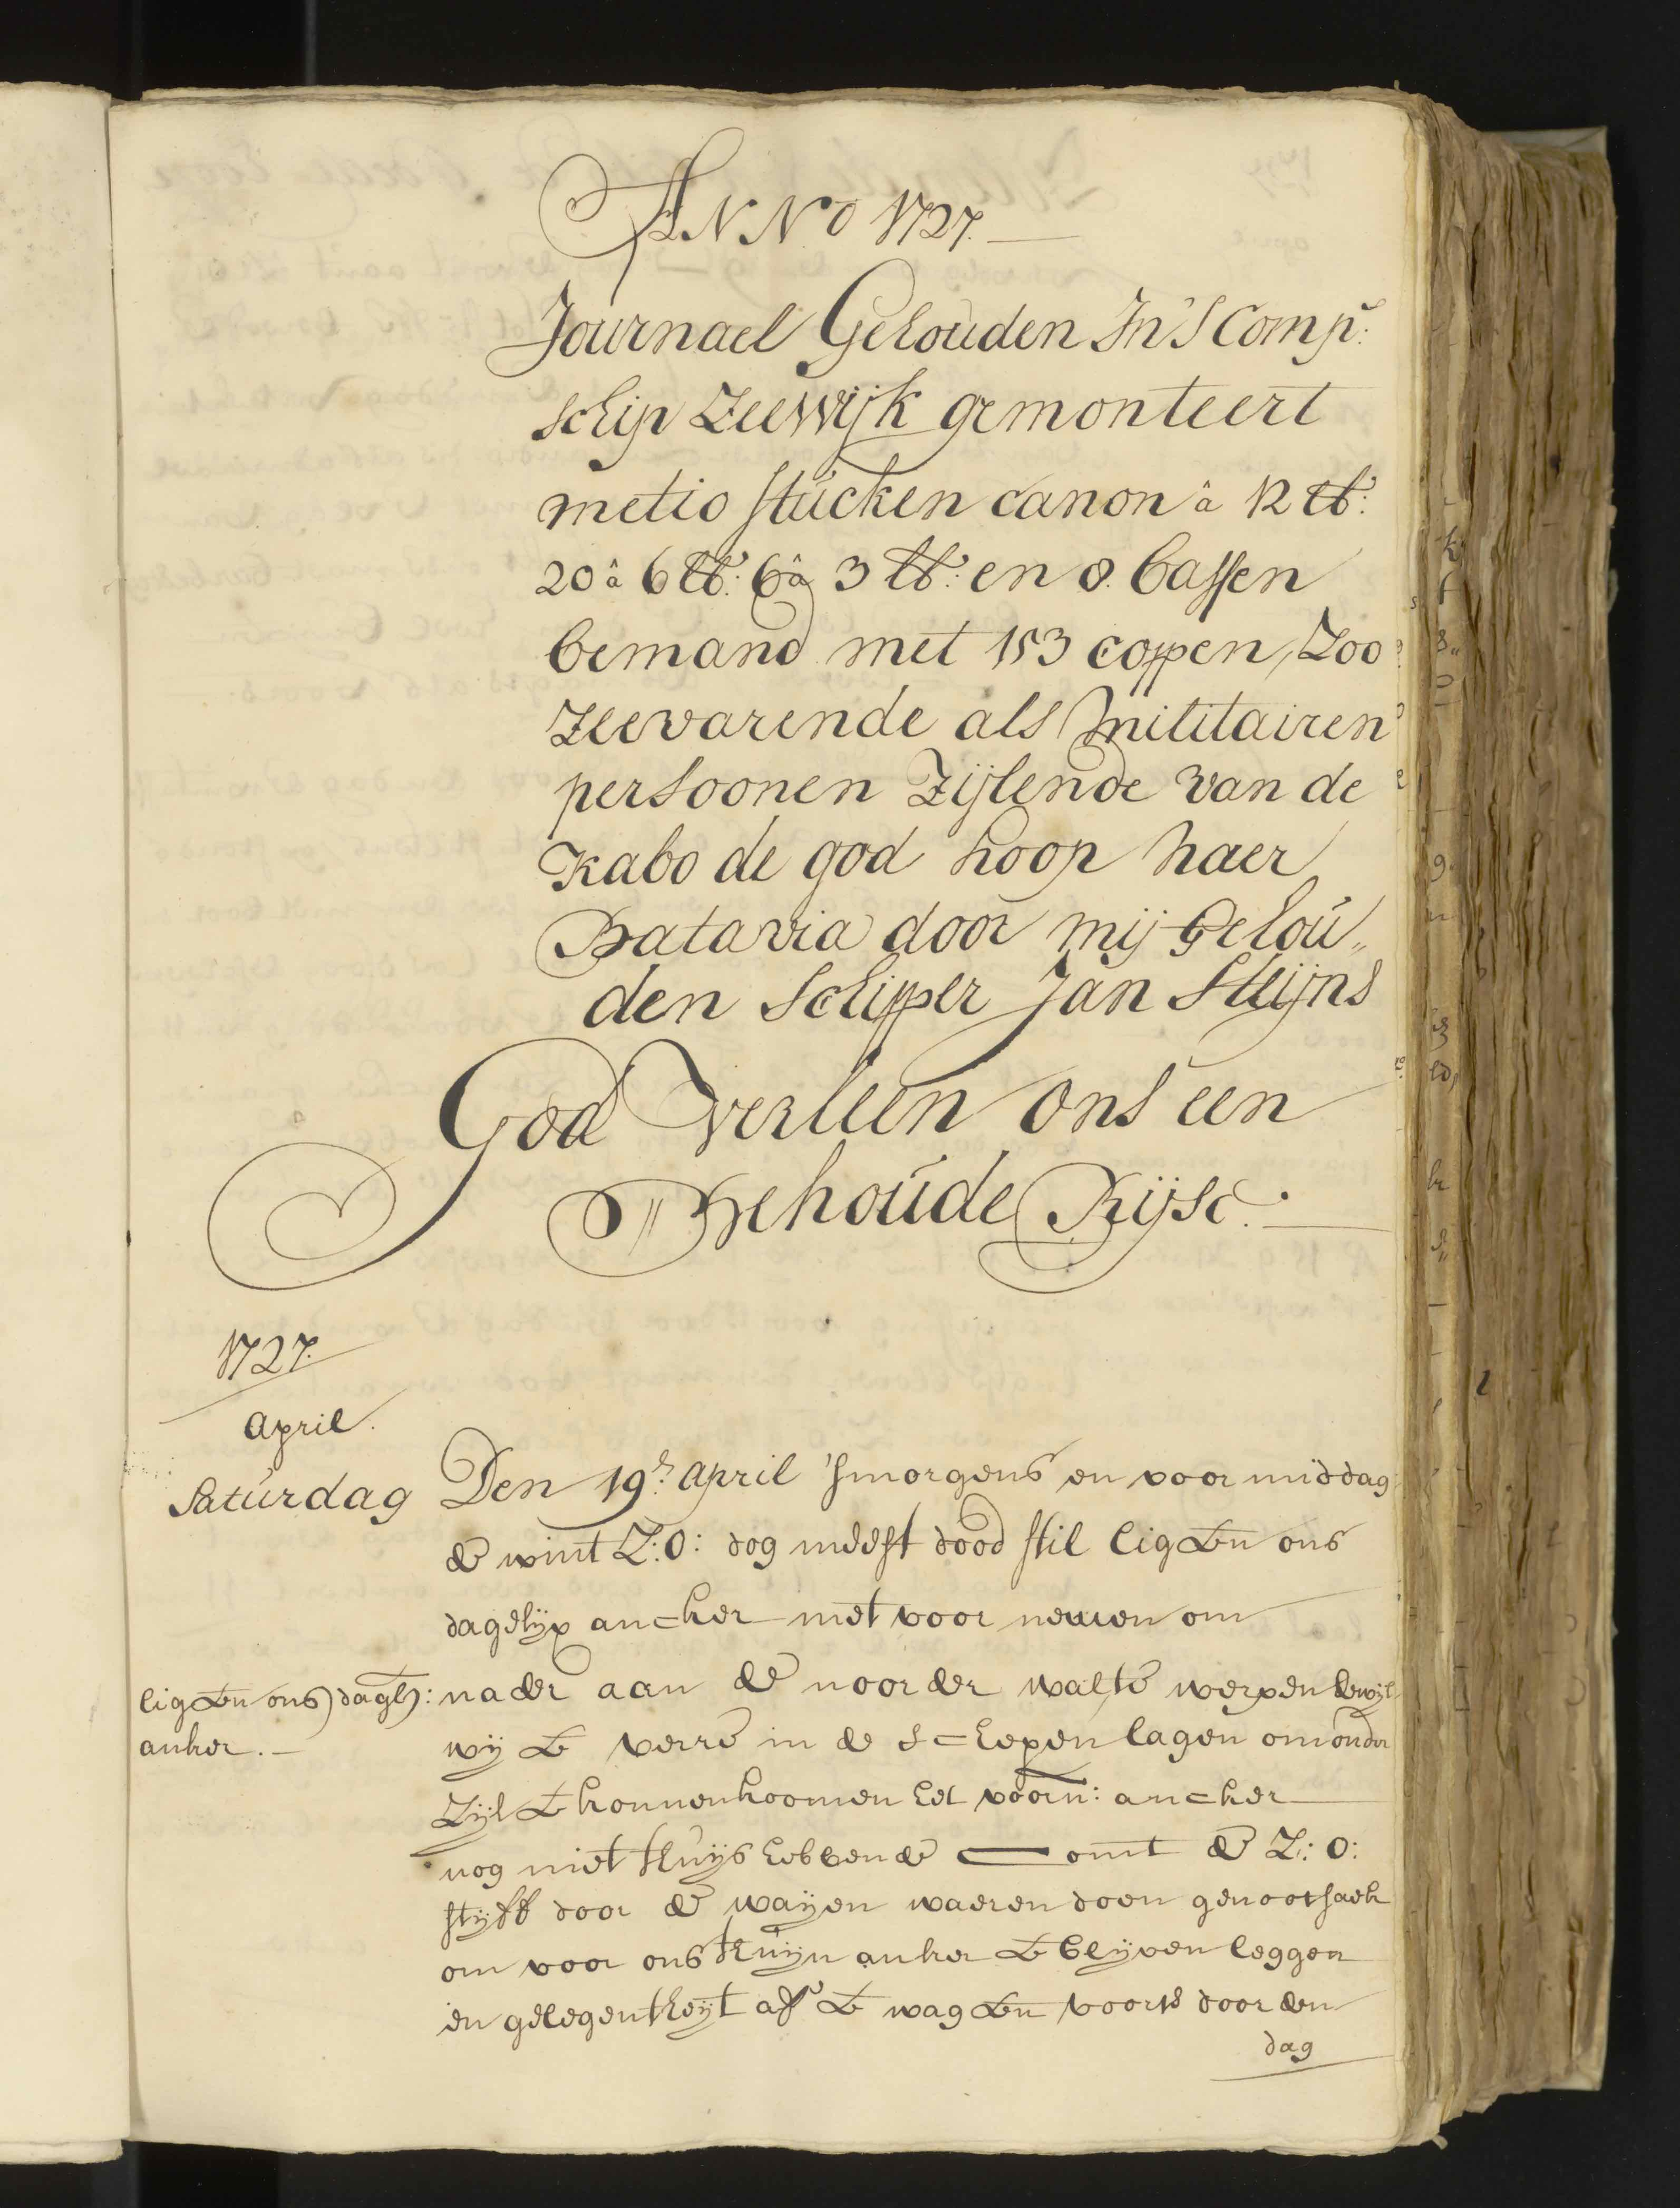 ANNO 1727.
Journael Gehouden In's Comp:
schip Zeewijk gemonteert
met 10 stúcken canon â 12 lb:
20 â 6 lb: 6 â 3 lb: en 8. bassen
bemand met 153 coppen, Zoo
Zeevarende als militairen
persoonen Zijlende van de
Kabo de god hoop naer
Batavia door mij Gehoú„
den Schipper Jan Steijns
God verleen ons een
Gehoúde Rijse.
1727.
April.
Satúrdag
Den 19:e April 'smorgens en voormiddag
de wint Z:O: dog meest dood stil ligten ons
dagelijx ancker met voor nemen om
ligten ons dagl:
anker.
nader aan de noorder wal te werpen dewijl
wij te verre in de scheepen lagen om onder
Zijl te konnen koomen het voorn: ancker
nog niet thuijs hebbende omt de Z:O:
stijff door de waijen waeren doen genootsaek
om voor ons thuijn anker te blijven leggen
en gelegentheijt aff te wagten voorts door den
dag